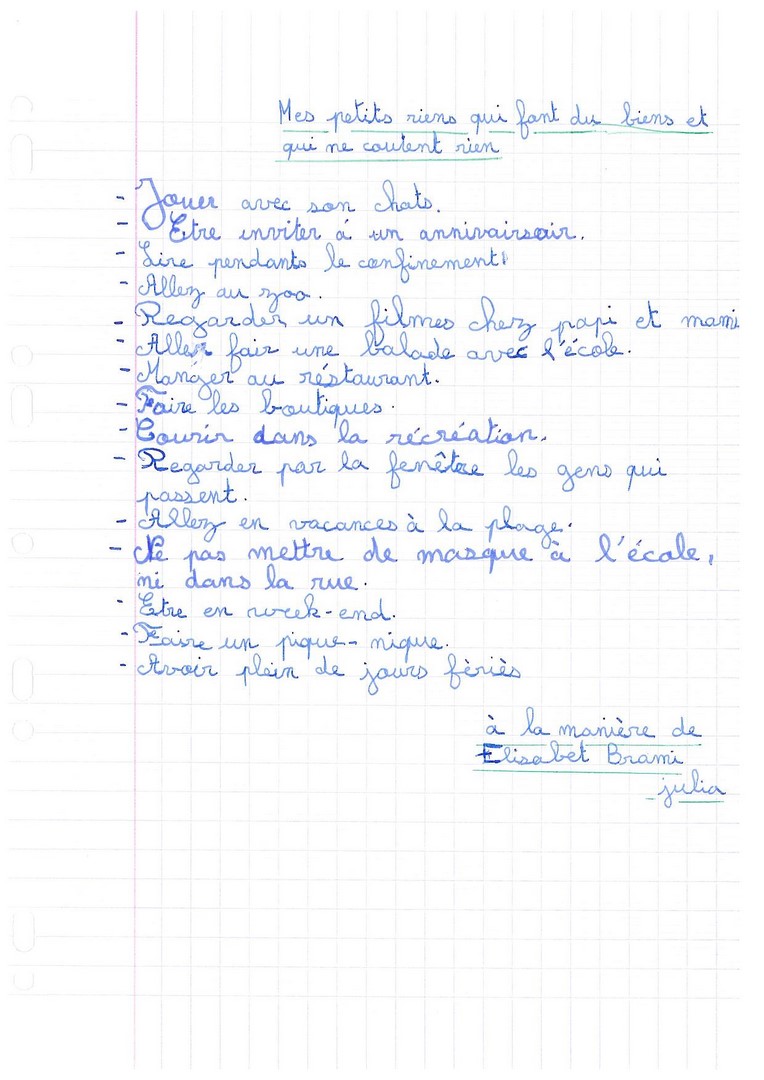 Mes petits riens qui font du biens et
qui ne coutent rien
- Jouer avec son chats.
- Etre inviter á un annivairsair.
- Lire pendants le confinement!
- Allez au zoo.
- Regarder un filmes chez papi et mami
- Aller fair une balade avec l'école.
- Manger au réstaurant.
- Faire les boutiques.
- Courir dans la récréation.
- Regarder par la fenêtre les gens qui
passent.
- Allez en vacances à la plage.
- Ne pas mettre de masque à l'école,
ni dans la rue.
- Etre en week-end.
- Faire un pique-nique.
- Avoir plein de jours fèriès
à la manière de
Elisabet Brami
julia